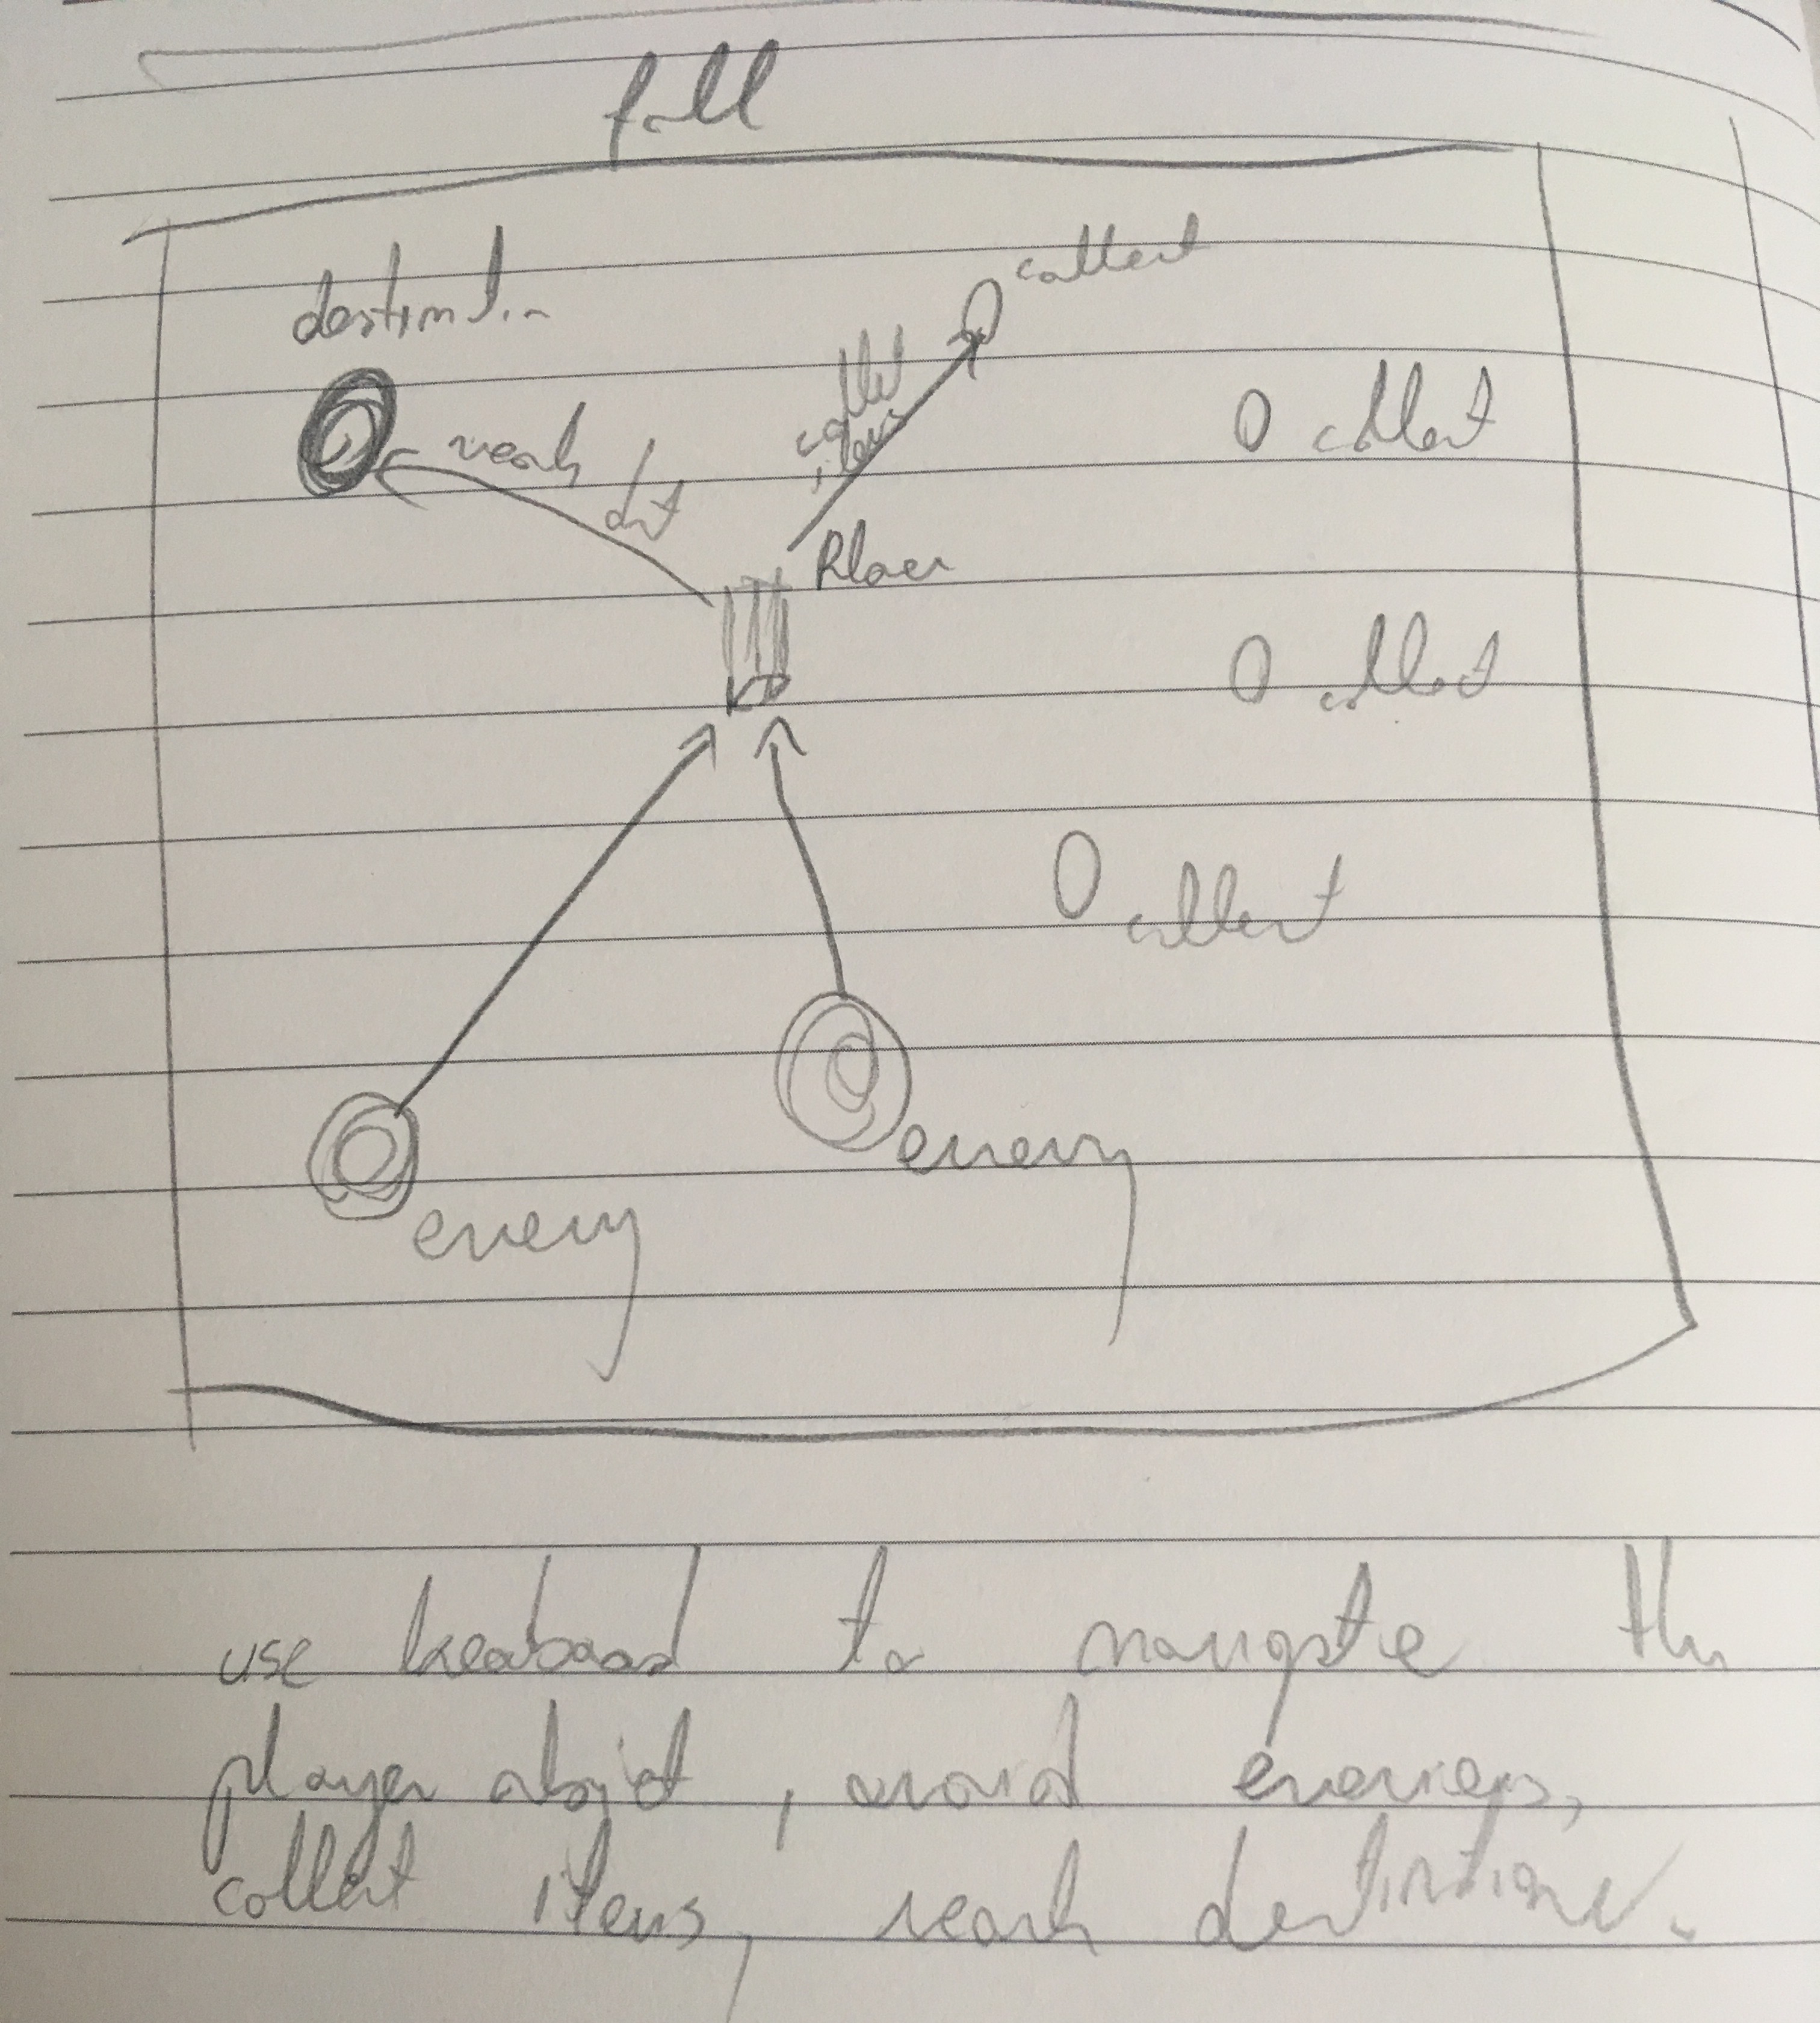 destination
collect
collect items
collect
reach dst
Player
collect
collect
enemy
enemy
use keaboard to navigate the
player object, avoid enemies,
collect items, reach destination.